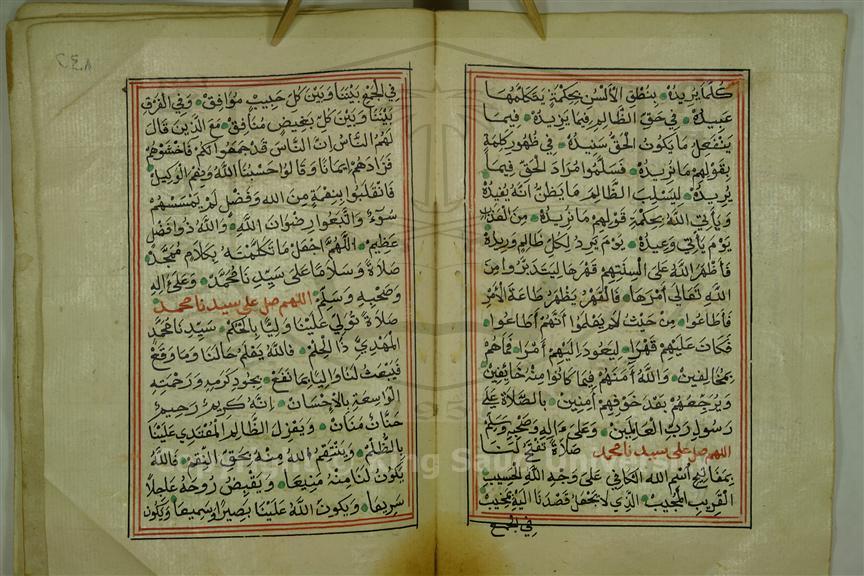 كلما يريده بنطق الألسن بحكمة يتكلم بها
عبيده في حق الظالم فيما يريده فيما
ينفعل ما يكون الحق سنيده في ظهور كلمة
بقولهم ما نريده فسلموا مراد الحق فيما
يريده ليسلب الظالم ما يظن انه يفيده
وياتي الله بحكمة قولهم ما نريده من العذاب
يوم ياتي وعيده يوم يرد لكل ظالم وريده
فاظهر الله على السنتهم قهرها ليتدبروا من
الله تعالى امرها فالقهر يظهر طاعة الأمر
فاطاعوا من حيث لا يعلموا انهم اطاعوا
فكان عليهم قهرا ليعود اليهم امرا فما هم
بمخالفين والله امنهم فيما كانوا منه خايفين
ويرجعهم بعد خوفهم امنين بالصلاة على
رسول رب العالمين وعلى اله وصحبه وسلم
اللهم صل على سيدنا محمد صلاة تفتح لنا
بمفاتيح اسم الله الكافي على وجهه الله الحسيب
القريب المجيب الذي لا يجعل قصدنا اليه بمجيب
في الجمع
٢٤٨
في الجمع بيننا وبين كل حبيب موافق وفي الفرق
بيننا وبين كل بغيض منافق مع الذين قال
لهم الناس ان الناس قد جمعوا لكم فاخشوهم
فزادهم ايمانا وقالوا حسبنا الله ونعم الوكيل
فانقلبوا بنعمة من الله وفضل لم يمسسهم
سوء واتبعوا رضوان الله والله ذو فضل
عظيم اللهم اجعل ما تكلمت به بكلام ممجد
صلاة وسلاما على سيدنا محمد وعلى اله
وصحبه وسلم اللهم صل على سيدنا محمد
صلاة تولي علينا وليا بالحكم سيدنا محمد
المهدي ذا الحلم فالله يعلم حالنا وما وقع
فيبعث لنا واليا بما نفع بجود كرمه ورحمته
الواسعة بالاحسان انه كريم رحيم
حنان منان ويعزل الظالم المعتدي علينا
بالظلم وينتقم الله منه بحق النقم فالله
يكون لنا منه منيعا ويقبض روحه عاجلا
سريعا ويكون الله علينا بصيرا وسميعا ويكون